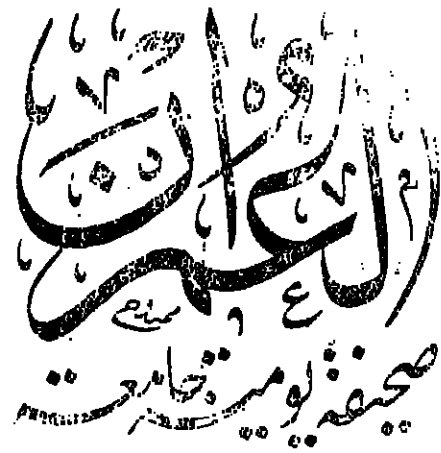 العمران
صحيفة يومية جامعة